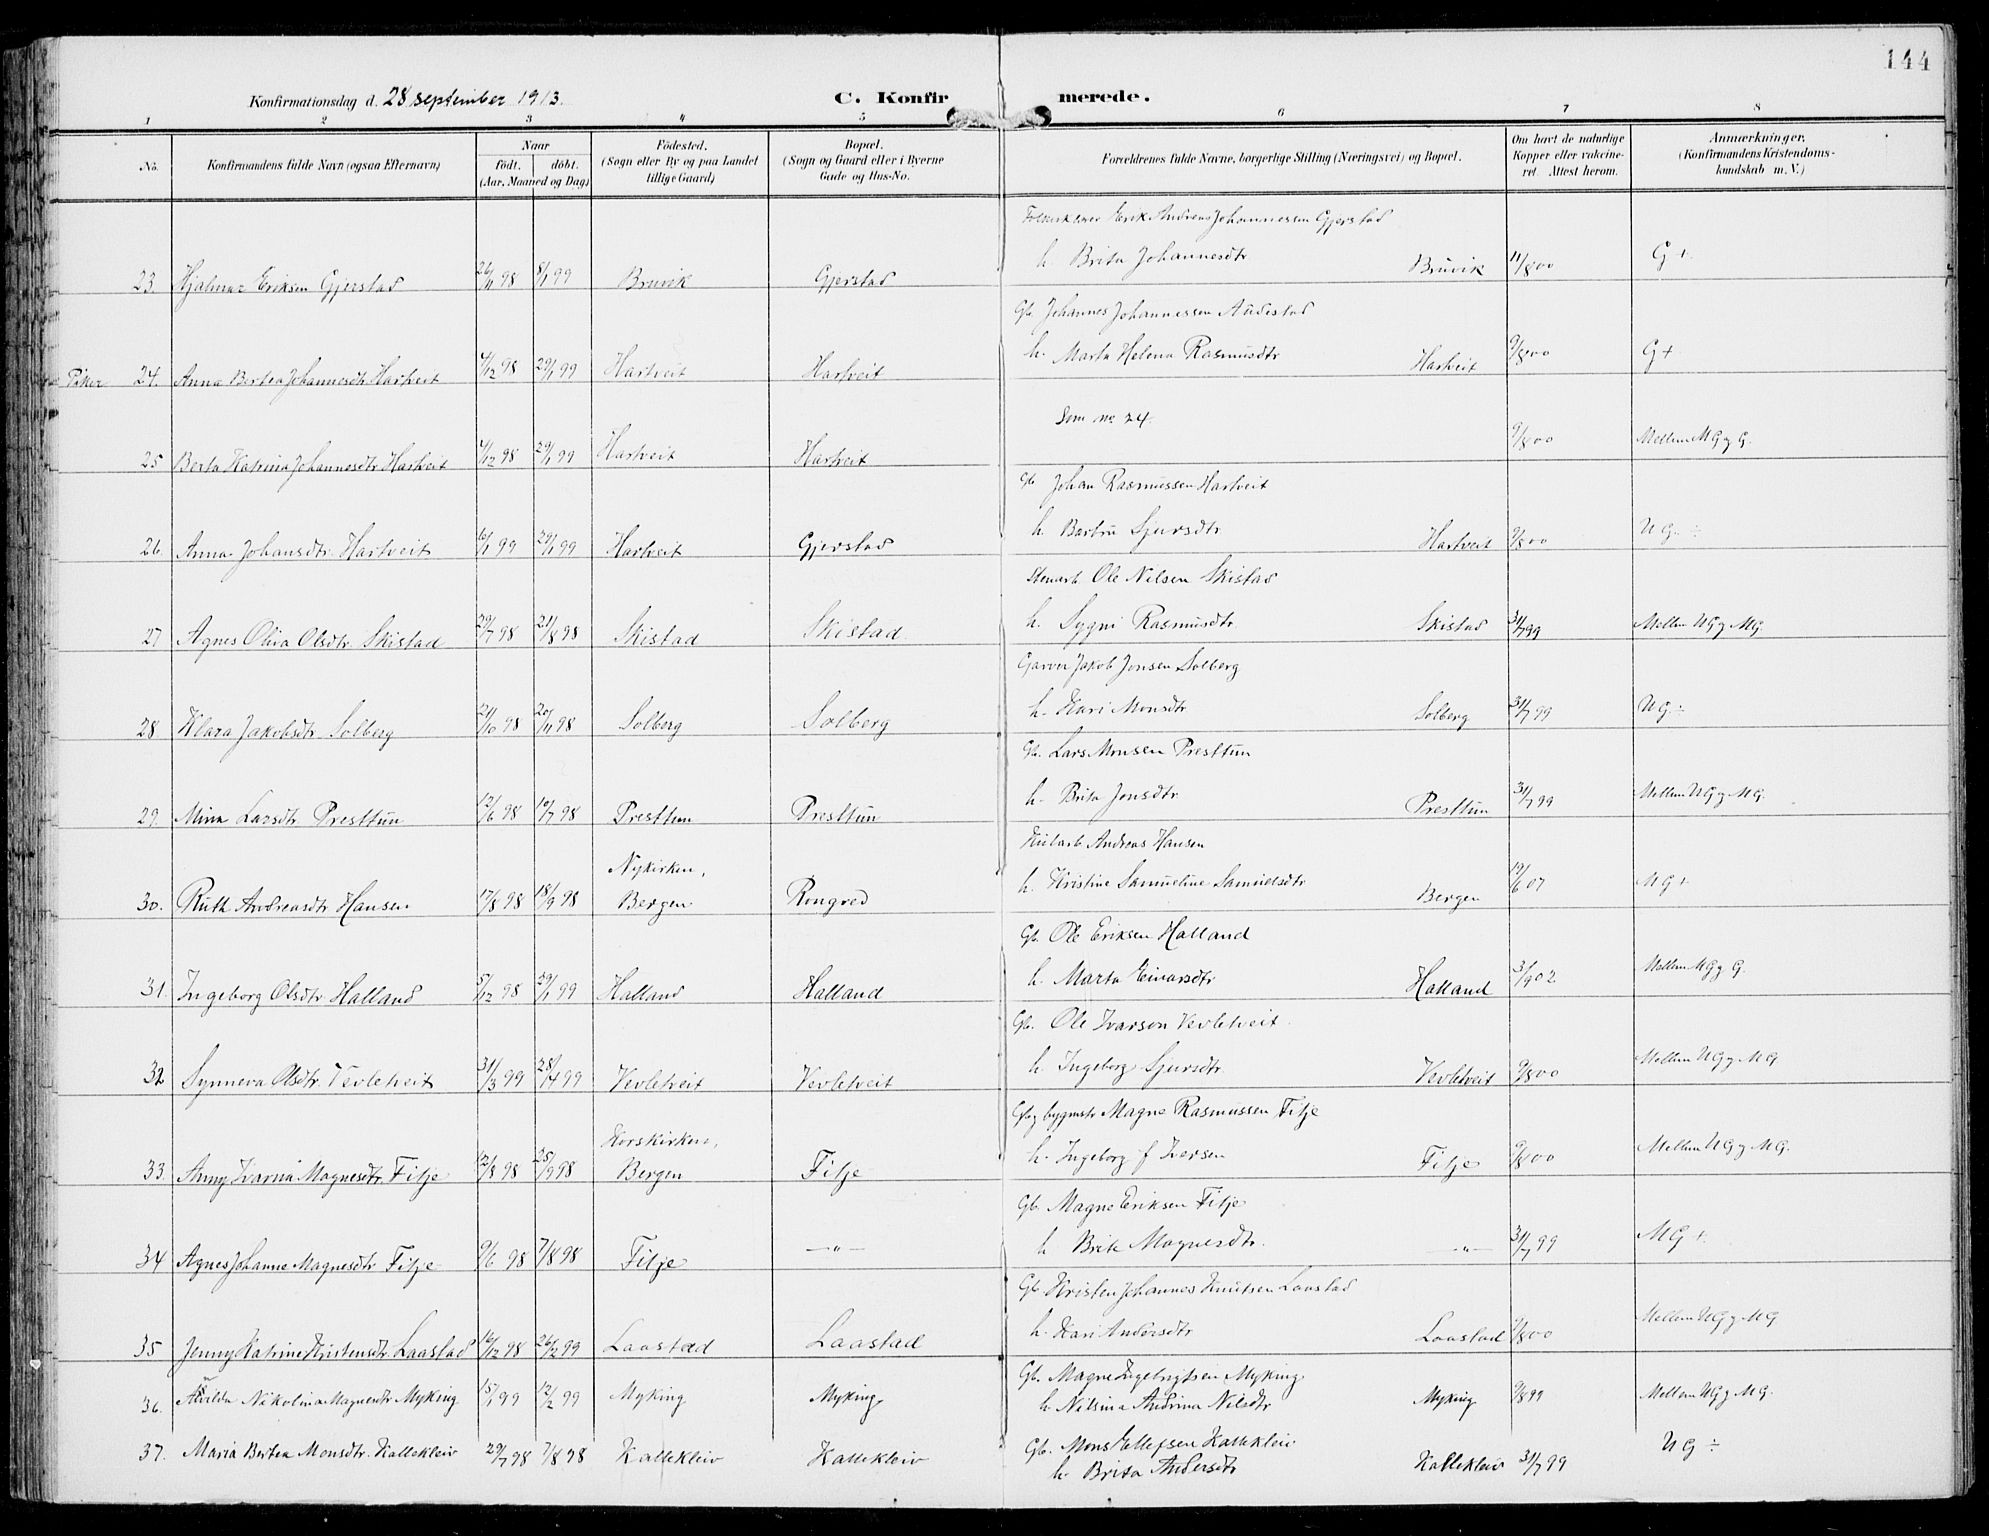 144
Konfirmationsdag d. 28 september 1913.
C. Konfirmerede.
1 2 3 4 5 6 7 8
No.
Konfirmandens fulde Navn (ogsaa Efternavn)
Naar
født. døbt.
(Aar, Maaned og Dag)
Fødested.
(Sogn eller By og paa Landet
tillige Gaard)
Bopæl.
(Sogn og Gaard eller i Byerne
Gade og Hus-No.
Forældrenes fulde Navne, borgerlige Stilling (Næringsvei) og Bopæl.
Om havt de naturlige
Kopper eller vakcine-
ret. Attest herom.
Anmærkninger.
(Konfirmandens Kristendoms-
kundskab m. V.)
Erik Andreas Johannessen Gjerstad
23. Hjalmar Eriksen Gjerstad 26/11 98 8/1 99 Bruvik Gjerstad h. Brita Johannesdtr Bruvik 11/8 00 G +.
Gb. Johannes Johannessen Audestad
Piker 24. Anna Bertea Johannesdtr. Hartveit 4/12 98 29/1 99 Hartveit Hartveit h. Marta Helena Rasmusdtr Hartveit 9/8 00 G +
Som no 24.
25 Berta Katrina Johannesdtr. Hartveit 4/12 98 29/1 99 Hartveit Hartveit 9/8 00 Mellem MG g G.
Gb Johan Rasmussen Hartveit
26. Anna Johansdtr. Hartveit 16/1 99 29/1 99 Hartveit Gjerstad h. Barbru Sjursdtr Hartveit 9/8 00 UG. ÷
Stenarb. Ole Nilsen Skistad
27 Agnes Olivia Olsdtr. Skistad 29/7 98 21/8 98 Skistad Skistad h. Sygni Rasmusdtr. Skistad 31/7 99 Mellem UG g MG.
Garver Jakob Jonsen Solberg
28 Klara Jakobsdtr Solberg 21/10 98 20/11 98 Solberg Solberg h. Kari Monsdtr Solberg 31/7 99 UG. ÷
Gb. Lars Monsen Presttun
29. Mina Larsdtr Presttun 12/6 98 10/7 98 Presttun Presttun h. Brita Jonsdtr Presttun 31/7 99 Mellem UG g MG.
Andreas Hansen
30. Ruth Andreasdtr Hansen 17/8 98 18/9 98 Nykirken, Bergen Rongved h. Kristine Samueline Samuelsdtr Bergen 19/6 07 MG +
Gb. Ole Eriksen Halland
31. Ingeborg Olsdtr Halland 5/12 98 29/1 99 Halland Halland h. Marta Eivarsdtr Halland 3/9 02 Mellem MG g G.
Gb. Ole Ivarson Vevletveit.
32 Synneva Olsdtr. Vevletveit 31/3 99 28/4 99 Vevletveit Vevletveit h. Ingeborg Sjursdtr Vevletveit 9/8 00 Mellem UG g MG
Gb g bygmstr Magne Rasmussen Fitje
33. Anny Ivarna Magnesdtr. Fitje 12/8 98 25/9 98 Korskirken, Bergen Fitje h. Ingeborg f Iversen Fitje 9/8 00 Mellem UG g MG.
Gb. Magne Eriksen Fitje
34 Agnes Johanne Magnesdtr Fitje 9/6 98 7/8 98 Fitje —"— h Brita Magnesdtr. —"— 31/7 99 MG +.
Gb Kristen Johannes Knutsen Laastad
35 Jenny Katrine Kristensdtr. Laastad 16/12 98 26/2 99 Laastad Laastad h. Kari Andersdtr Laastad 9/8 00 Mellem UG g MG
Gb. Magne Ingebrigtsen Myking
36. Nikolina Magnesdtr Myking 15/1 99 12/2 99 Myking Myking h Nilsina Andrina Nilsdtr Myking 9/8 99 Mellem UG g MG.
Gb. Mons Ellefsen Kallekleiv
37. Maria Bertea Monsdtr. Kallekleiv 29/7 98 7/8 98 Kallekleiv Kallekleiv h. Brita Andersdtr Kallekleiv 31/7 99 UG ÷